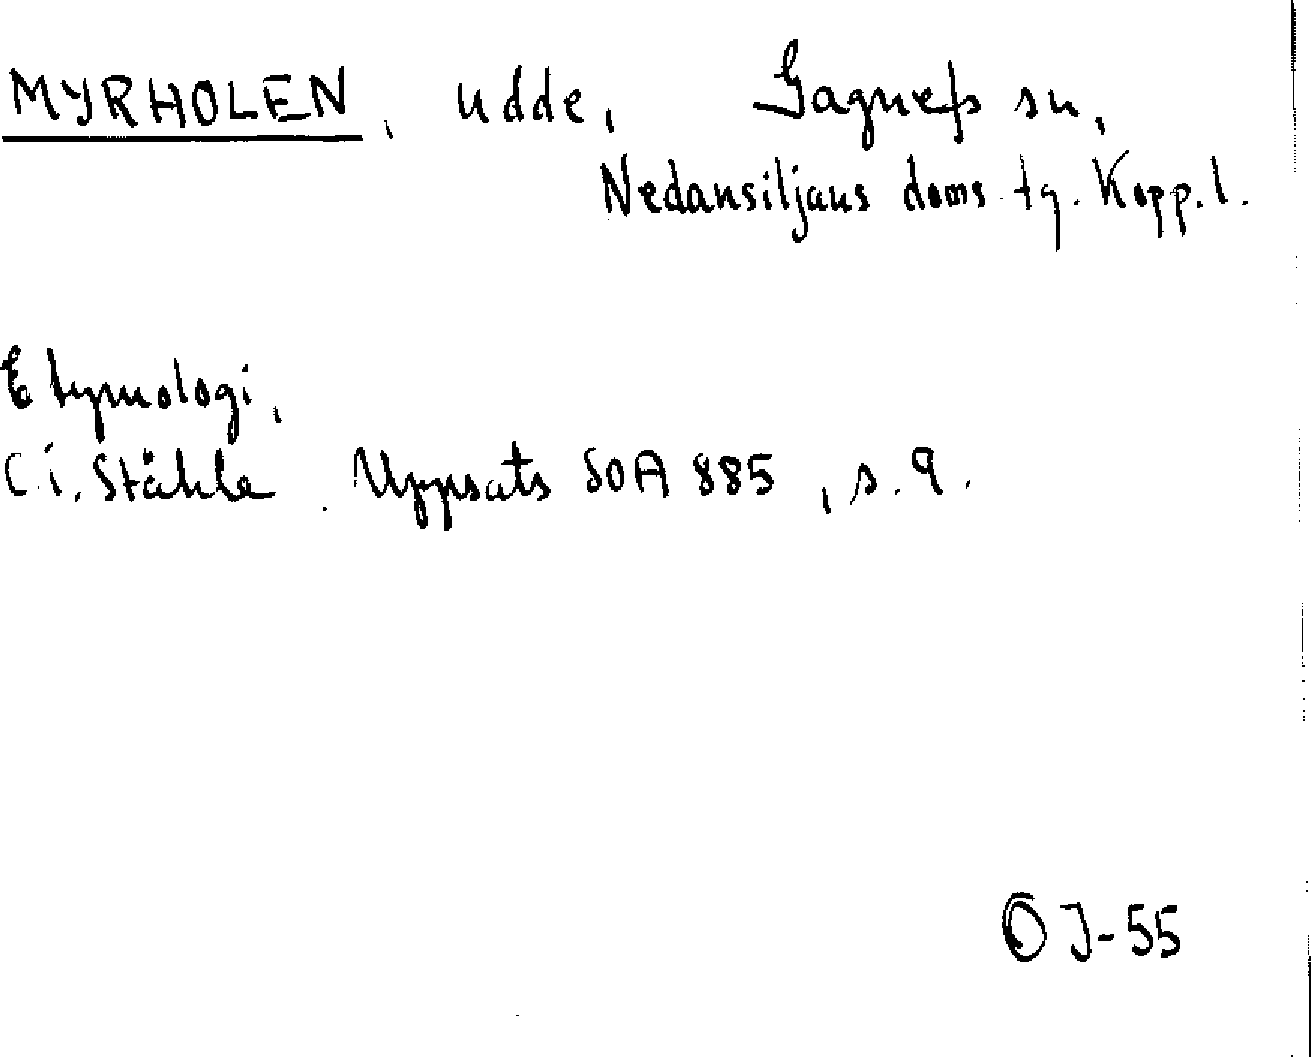 MYRHOLEN, udde, Gagnefs sn,
Nedansiljans doms.tg. Kopp.l.
Etymologi,
C.I. Ståhle Uppsats SOA 885, s. 9.
OJ-55